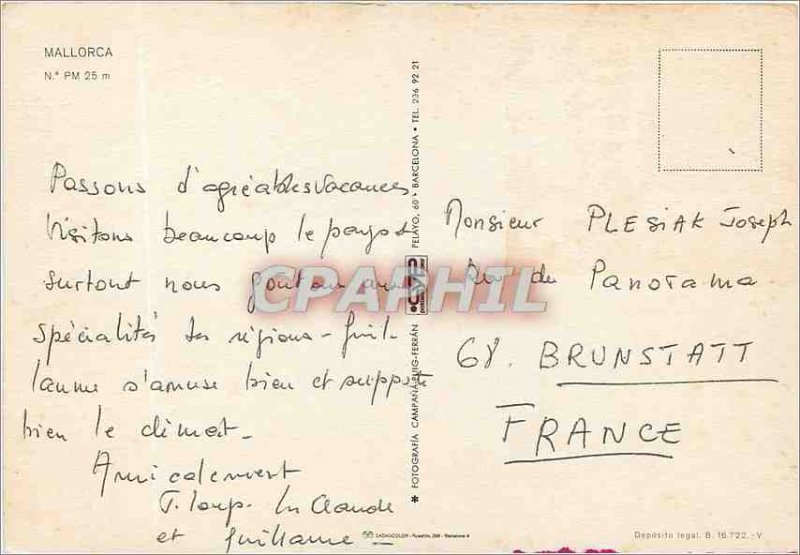 MALLORCA
N.° PM 25 m
Passons d'agréables vacances
Visitons beaucoup le pays et
surtout nous goutons aux
spécialités des régions - Guil
laume s'amuse bien et supporte
bien le climat -
Amicalement
Claude
et Guillaume -
Monsieur PLESIAK Joseph
Rue du Panorama
68. BRUNSTATT
FRANCE
FOTOGRAFÍA CAMPAÑÁ-PUIG-FERRÁN
PELAYO, 60 • BARCELONA • TEL. 236 92 21
CPARHIL
Depósito legal. B. 16.722.-V